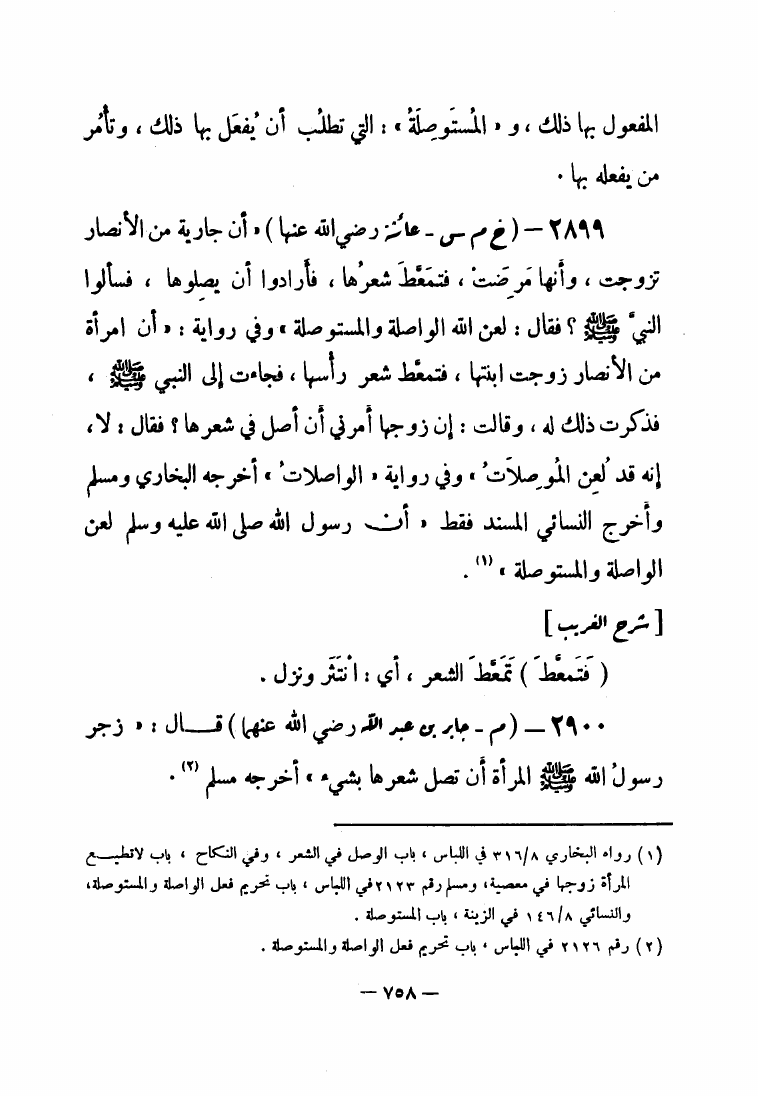 المفعول بها ذلك ، و « المُستَوصِلَةُ » : التي تطلُب أن يُفعَل بها ذلك ، وتأمُر
من يفعله بها .
٢٨٩٩ – ( خ م س - عائشة رضي الله عنها ) « أن جارية من الأنصار
تزوجت ، وأنها مَرِضَتْ ، فتمَعَّطَ شعرُها ، فأرادوا أن يصِلوها ، فسألوا
النبيَّ ﷺ ؟ فقال : لعن الله الواصلة والمستوصلة » وفي رواية : « أن امرأة
من الأنصار زوجت ابنتها ، فتمعَّط شعر رأسها ، فجاءت إلى النبي ﷺ ،
فذكرت ذلك له ، وقالت : إن زوجها أمرني أن أصل في شعرها ؟ فقال : لا ،
إنه قد لُعِن المُوصِلَاتُ » وفي رواية « الواصلاتُ » أخرجه البخاري ومسلم
وأخرج النسائي المسند فقط « أن رسول الله صلى الله عليه وسلم لعن
الواصلة والمستوصلة » (١) .
[ شرح الغريب ]
( فَتَمعَّطَ ) تَمَعَّطَ الشعر ، أي : انْتَثَرَ ونزل .
٢٩٠٠ – ( م - جابر بن عبد الله رضي الله عنهما ) قال : « زجر
رسولُ الله ﷺ المرأة أن تصل شعرها بشيء » أخرجه مسلم (٢) .
(١) رواه البخاري ٣١٦/٨ في اللباس ، باب الوصل في الشعر ، وفي النكاح ، باب لا تطيع
المرأة زوجها في معصية ، ومسلم رقم ٢١٢٣ في اللباس ، باب تحريم فعل الواصلة والمستوصلة ،
والنسائي ١٤٦/٨ في الزينة ، باب المستوصلة .
(٢) رقم ٢١٢٦ في اللباس ، باب تحريم فعل الواصلة والمستوصلة .
– ٧٥٨ –